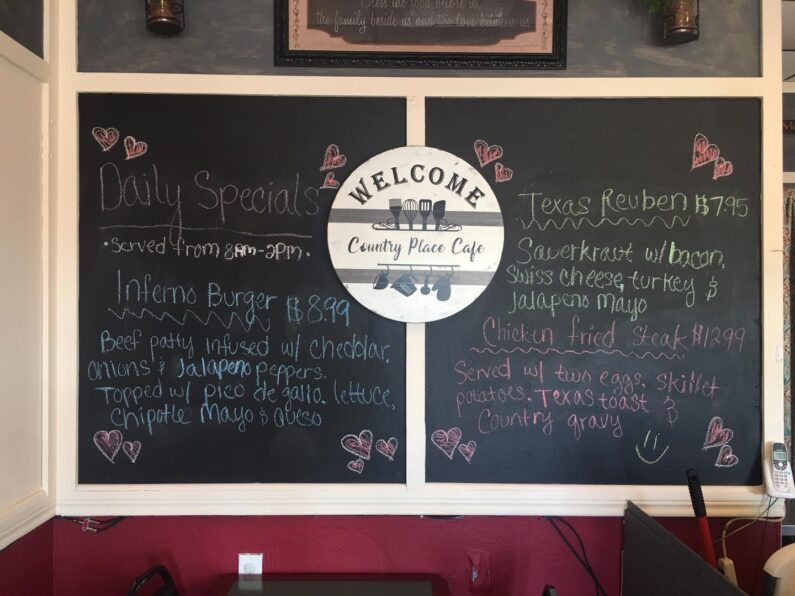 Bless the food before us,
the family beside us and the love between us
Daily Specials
• Served from 8AM-2PM.
Inferno Burger $8.99
Beef patty infused w/ cheddar,
onions & Jalapeno peppers.
Topped w/ pico de gallo, lettuce,
Chipotle Mayo & Queso
WELCOME
Country Place Cafe
Texas Reuben $7.95
Sauerkraut w/ bacon,
Swiss cheese, turkey &
Jalapeno mayo
Chicken fried Steak $12.99
Served w/ two eggs, skillet
potatoes, Texas toast &
Country gravy